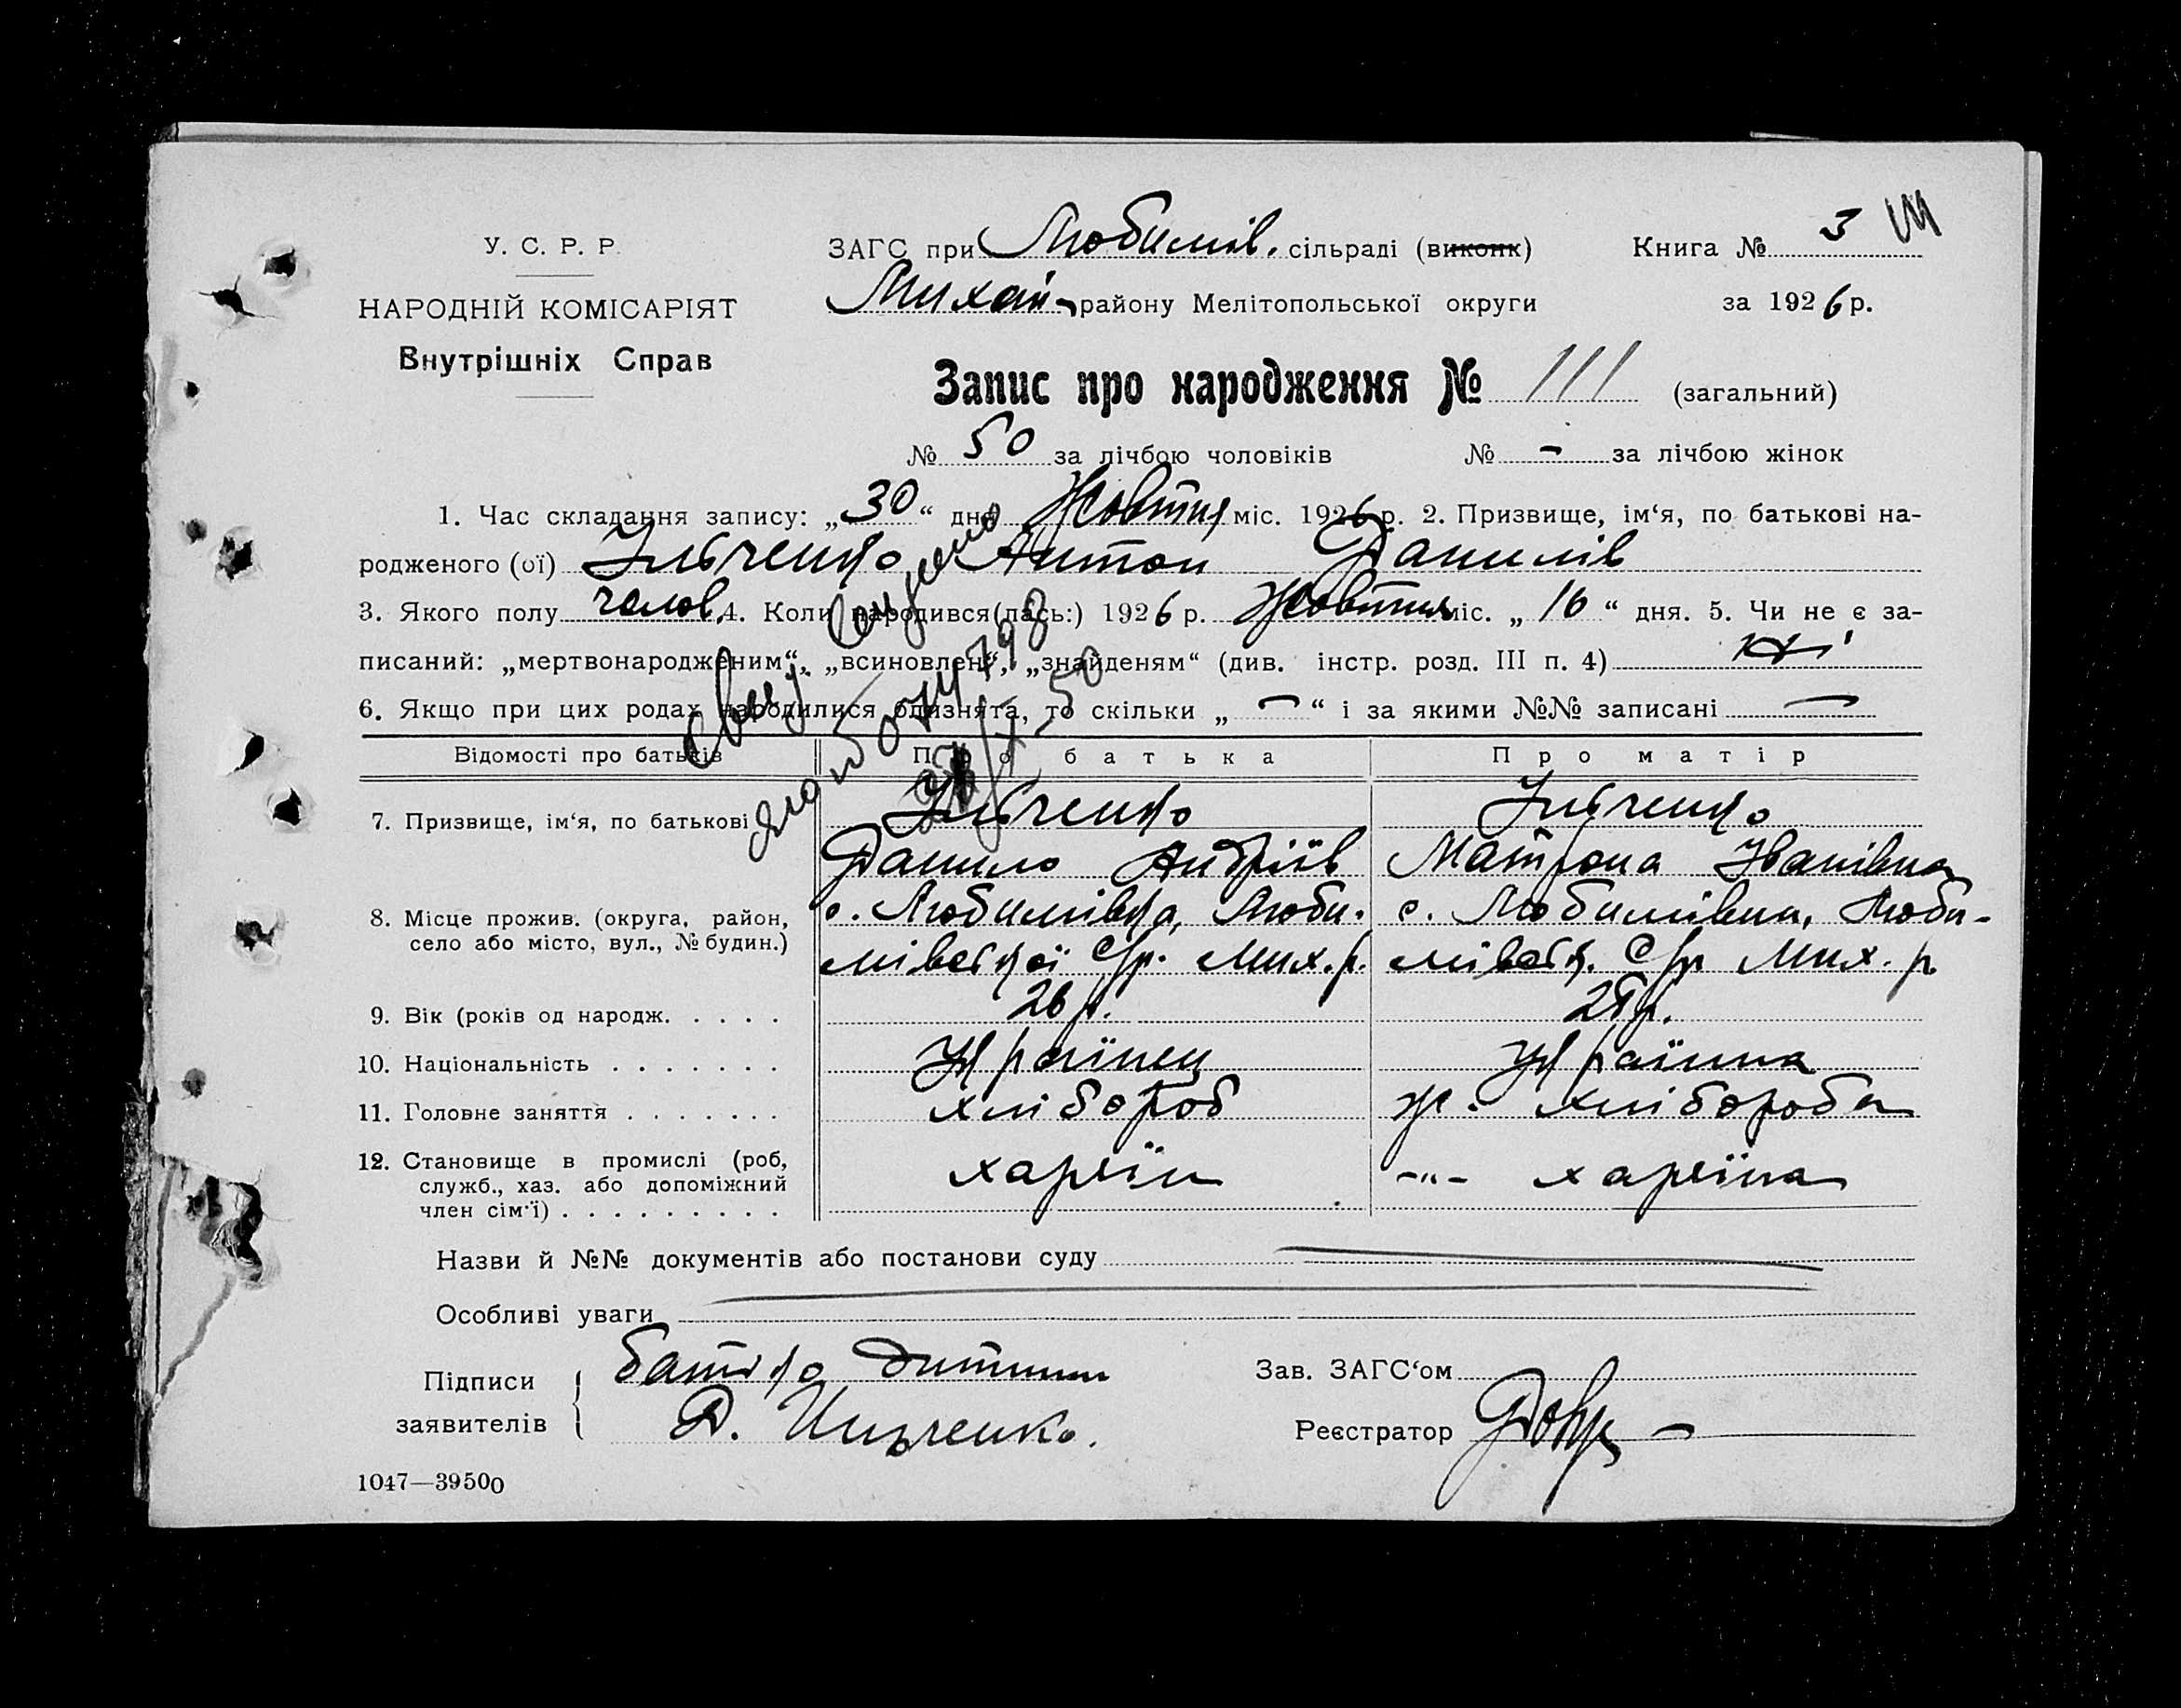 У. С. Р. Р.
НАРОДНІЙ КОМІСАРІЯТ
Внутрішніх Справ
ЗАГС при Любимів. сільраді (виконк) Книга № 3
Михай- району Мелітопольської округи за 1926 р.
Запис про народження № 111 (загальний)
№ 50 за лічбою чоловіків № – за лічбою жінок
1. Час складання запису: „30“ дня Жовтня міс. 1926 р. 2. Призвище, ім‘я, по батькові на-
родженого (ої) Ільченко Антон Данилів
3. Якого полу чолов. 4. Коли народився(лась:) 1926 р. Жовтня міс. „16“ дня. 5. Чи не є за-
писаний: „мертвонародженим“, „всиновлен“, „знайденям“ (див. інстр. розд. III п. 4) ні
6. Якщо при цих родах народилися близнята, то скільки „ – “ і за якими №№ записані –
Відомості про батьків Про батька Про матір
7. Призвище, ім‘я, по батькові Ільченко Ільченко
Данило Андріїв Матрона Іванівна
8. Місце прожив. (округа, район, с. Любимівка, Люби- с. Любимівка, Люби-
село або місто, вул., № будин.) мівської С/р. Мих. р. мівськ. С/р Мих. р.
9. Вік (років од народж. . . . . 26 р. р.
10. Національність . . . . . . . Українец Українка
11. Головне заняття . . . . . . . хлібороб ж. хлібороба
12. Становище в промислі (роб, хазяїн -"- хазяїна
служб., хаз. або допоміжний
член сім‘ї) . . . . . . . . .
Назви й №№ документів або постанови суду
Особливі уваги
Підписи батько дитини Зав. ЗАГС‘ом
заявителів Д. Ильченко. Реєстратор
1047—39500